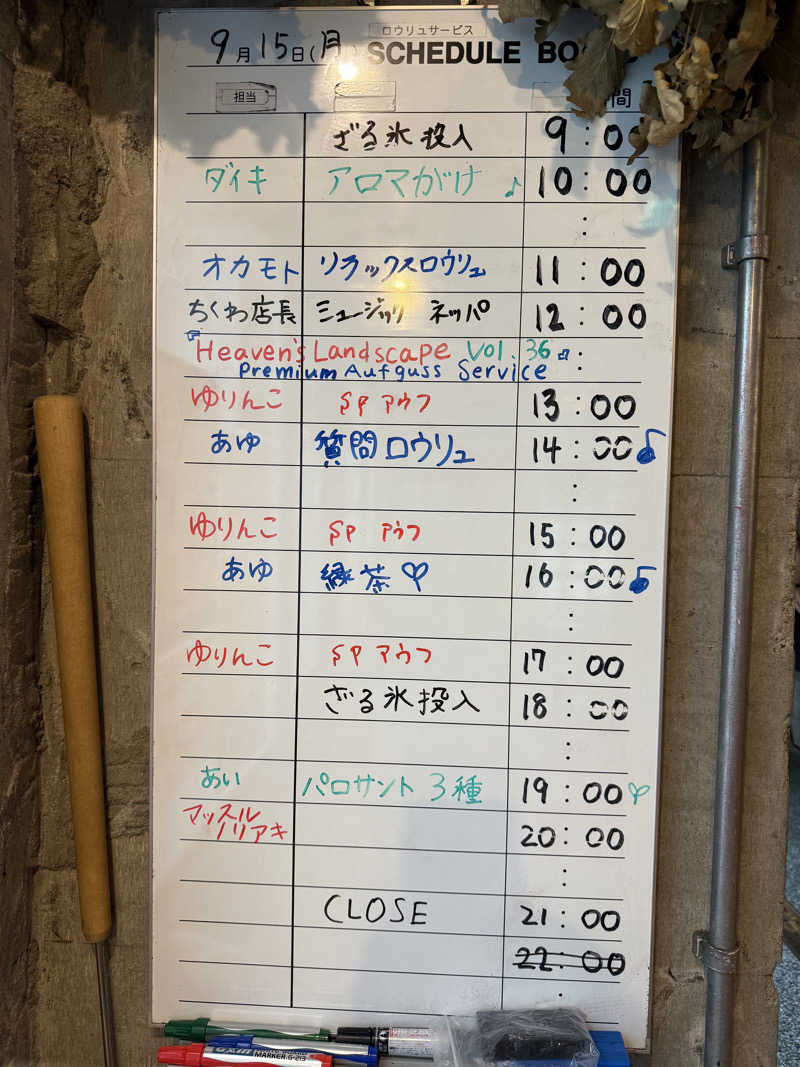 ロウリュサービス
9月15日(月) SCHEDULE BO
担当 間
ざる氷投入 9:00
ダイキ アロマがけ♪ 10:00
:
オカモト リラックスロウリュ 11:00
ちくわ店長 ミュージック ネッパ 12:00
Heaven's Landscape Vol.36 :
Premium Aufguss Service
ゆりんこ SP アウフ 13:00
あゆ 質問ロウリュ 14:00
:
ゆりんこ SP アウフ 15:00
あゆ 緑茶 16:00
:
ゆりんこ SP アウフ 17:00
ざる氷投入 18:00
:
あい パロサント 3種 19:00
マッスル
ノリアキ 20:00
:
CLOSE 21:00
22:00
:
MARKER